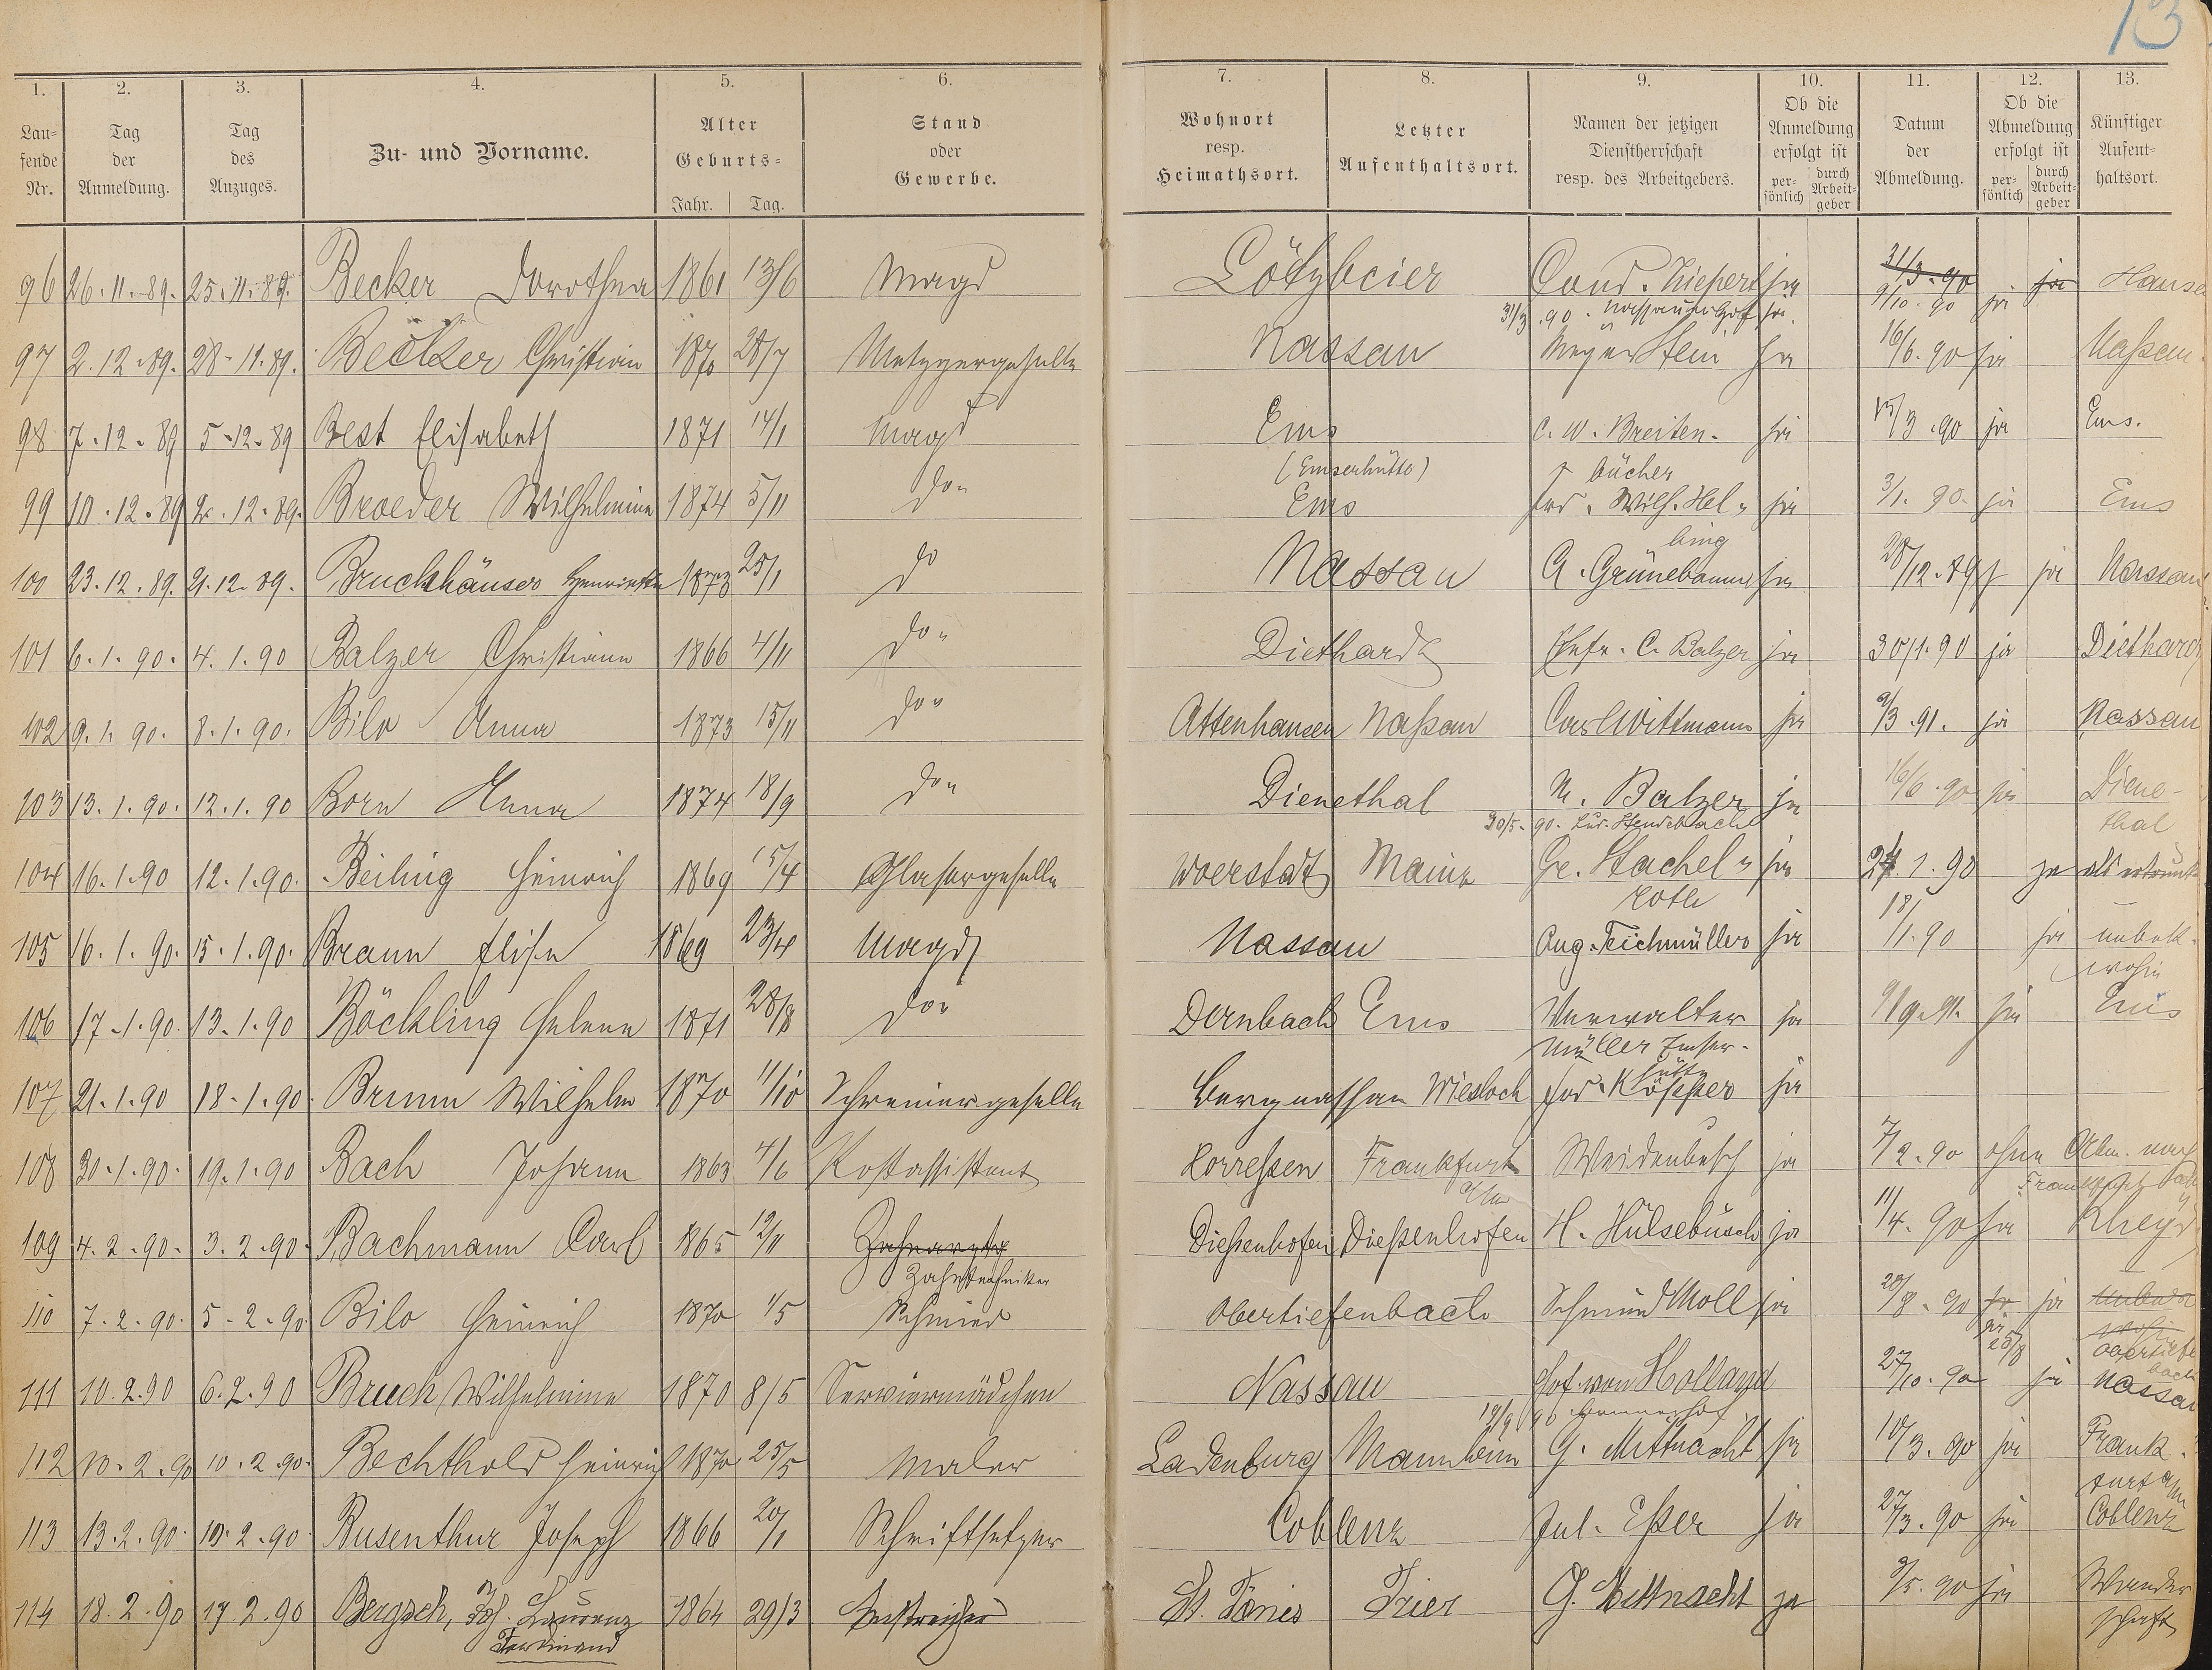 13
1. 2. 3. 4. 5. 6. 7. 8. 9. 10. 11. 12. 13.
Laufende Nr. Tag der Anmeldung. Tag des Anzuges. Zu- und Vorname. Alter Geburts- Jahr. Tag. Stand oder Gewerbe. Wohnort resp. Heimathsort. Letzter Aufenthaltsort. Namen der jetzigen Dienstherrschaft resp. des Arbeitgebers. Ob die Anmeldung erfolgt ist persönlich durch Arbeitgeber Datum der Abmeldung. Ob die Abmeldung erfolgt ist persönlich durch Arbeitgeber Künftiger Aufenthaltsort.
96 26.11.89. 25.11.89. Becker Dorothea 1861 13/6 Magd Cond. ja 31/3.90 ja
31/3.90. Nassauerhof ja. 9/10.90 ja
97 2.12.89. 28.11.89. Becker Christian 1870 28/7 Metzgergeselle Nassau Meyer Stein ja 16/6.90 ja Naßau
98 7.12.89 5.12.89 Best Elisabeth 1871 14/1 Magd Ems C. W. Breiten- ja 15/3.90 ja Ems.
(Emserhütte) bücher
99 10.12.89 2.12.89. Broeder Wilhelmine 1874 5/11 do" Ems Wilh. Hel" ja 3/1.90. ja Ems
bing
100 23.12.89. 21.12.89. Bruchhäuser Henriette 1873 25/1 do Nassau A. Grünebaum ja 28/12.89 ja Nassau
101 6.1.90. 4.1.90 Balzer Christiane 1866 4/11 do" Diethardt C. Balzer ja 30/1.90 ja Diethardt
102 9.1.90. 8.1.90. Bilo Anna 1873 15/11 do" Attenhausen Naßau Carl Wittmann ja 9/3.91. ja Nassau
103 13.1.90. 12.1.90 Born Anna 1874 18/9 do" Dienethal M. Balzer ja 16/6.90 ja Diene-
30/5.90. thal
104 16.1.90 12.1.90. Beiling Heinrich 1869 15/4 Glasergeselle Woerstadt Mainz Ge. Stachel" ja 24.1.90 ja als ertrunk
roth
105 16.1.90. 15.1.90. Braun Elise 1869 23/4 Magd Nassau Aug. Teichmüller ja 18/1.90 ja unbek.
wohin
106 17.1.90. 13.1.90 Böckling Helene 1871 28/8 do" Dernbach Ems Verwalter ja ja Ems
Müller Emser-
hütte
107 21.1.90 18.1.90. Brunn Wilhelm 1870 11/10 Schreinergeselle Bergnassau Wiesloch ja
108 30.1.90. 19.1.90 Bach Johann 1863 4/6 Postassistent Frankfurt a/M Weidenbusch ja 7/2.90 ohne Abm. nach
Frankfurt
109 4.2.90. 3.2.90. Bachmann Carl 1865 12/11 Zahnarzt Dießenhofen Dießenhofen H. Hülsebusch ja 11/4.90 ja Rheyd
Zahntechniker
110 7.2.90. 5.2.90 Bilo Heinrich 1870 1/5 Schmied Obertiefenbach Schmied Moll ja 20/8.90 ja ja
wohin
111 10.2.90 6.2.90 Bruch Wilhelmine 1870 8/5 Serviermädchen Nassau Hof von Holland 27/10.90 ja Nassau
112 10.2.90 10.2.90. Bechthold Heinrich 1870 25/5 Maler Ladenburg Mannheim G. Mittnacht ja 10/3.90 ja Frank-
furt a/M
113 13.2.90. 10.2.90. Busenthur Joseph 1866 20/1 Schriftsetzer Coblenz Jul. Eßer ja 27/3.90 ja Coblenz
114 18.2.90 17.2.90 Bergsch, Joh. Laurenz 1864 29/3 Anstreicher St. Tönies Trier G. Mittnacht ja 9/5.90 ja Wander
Ferdinand schaft